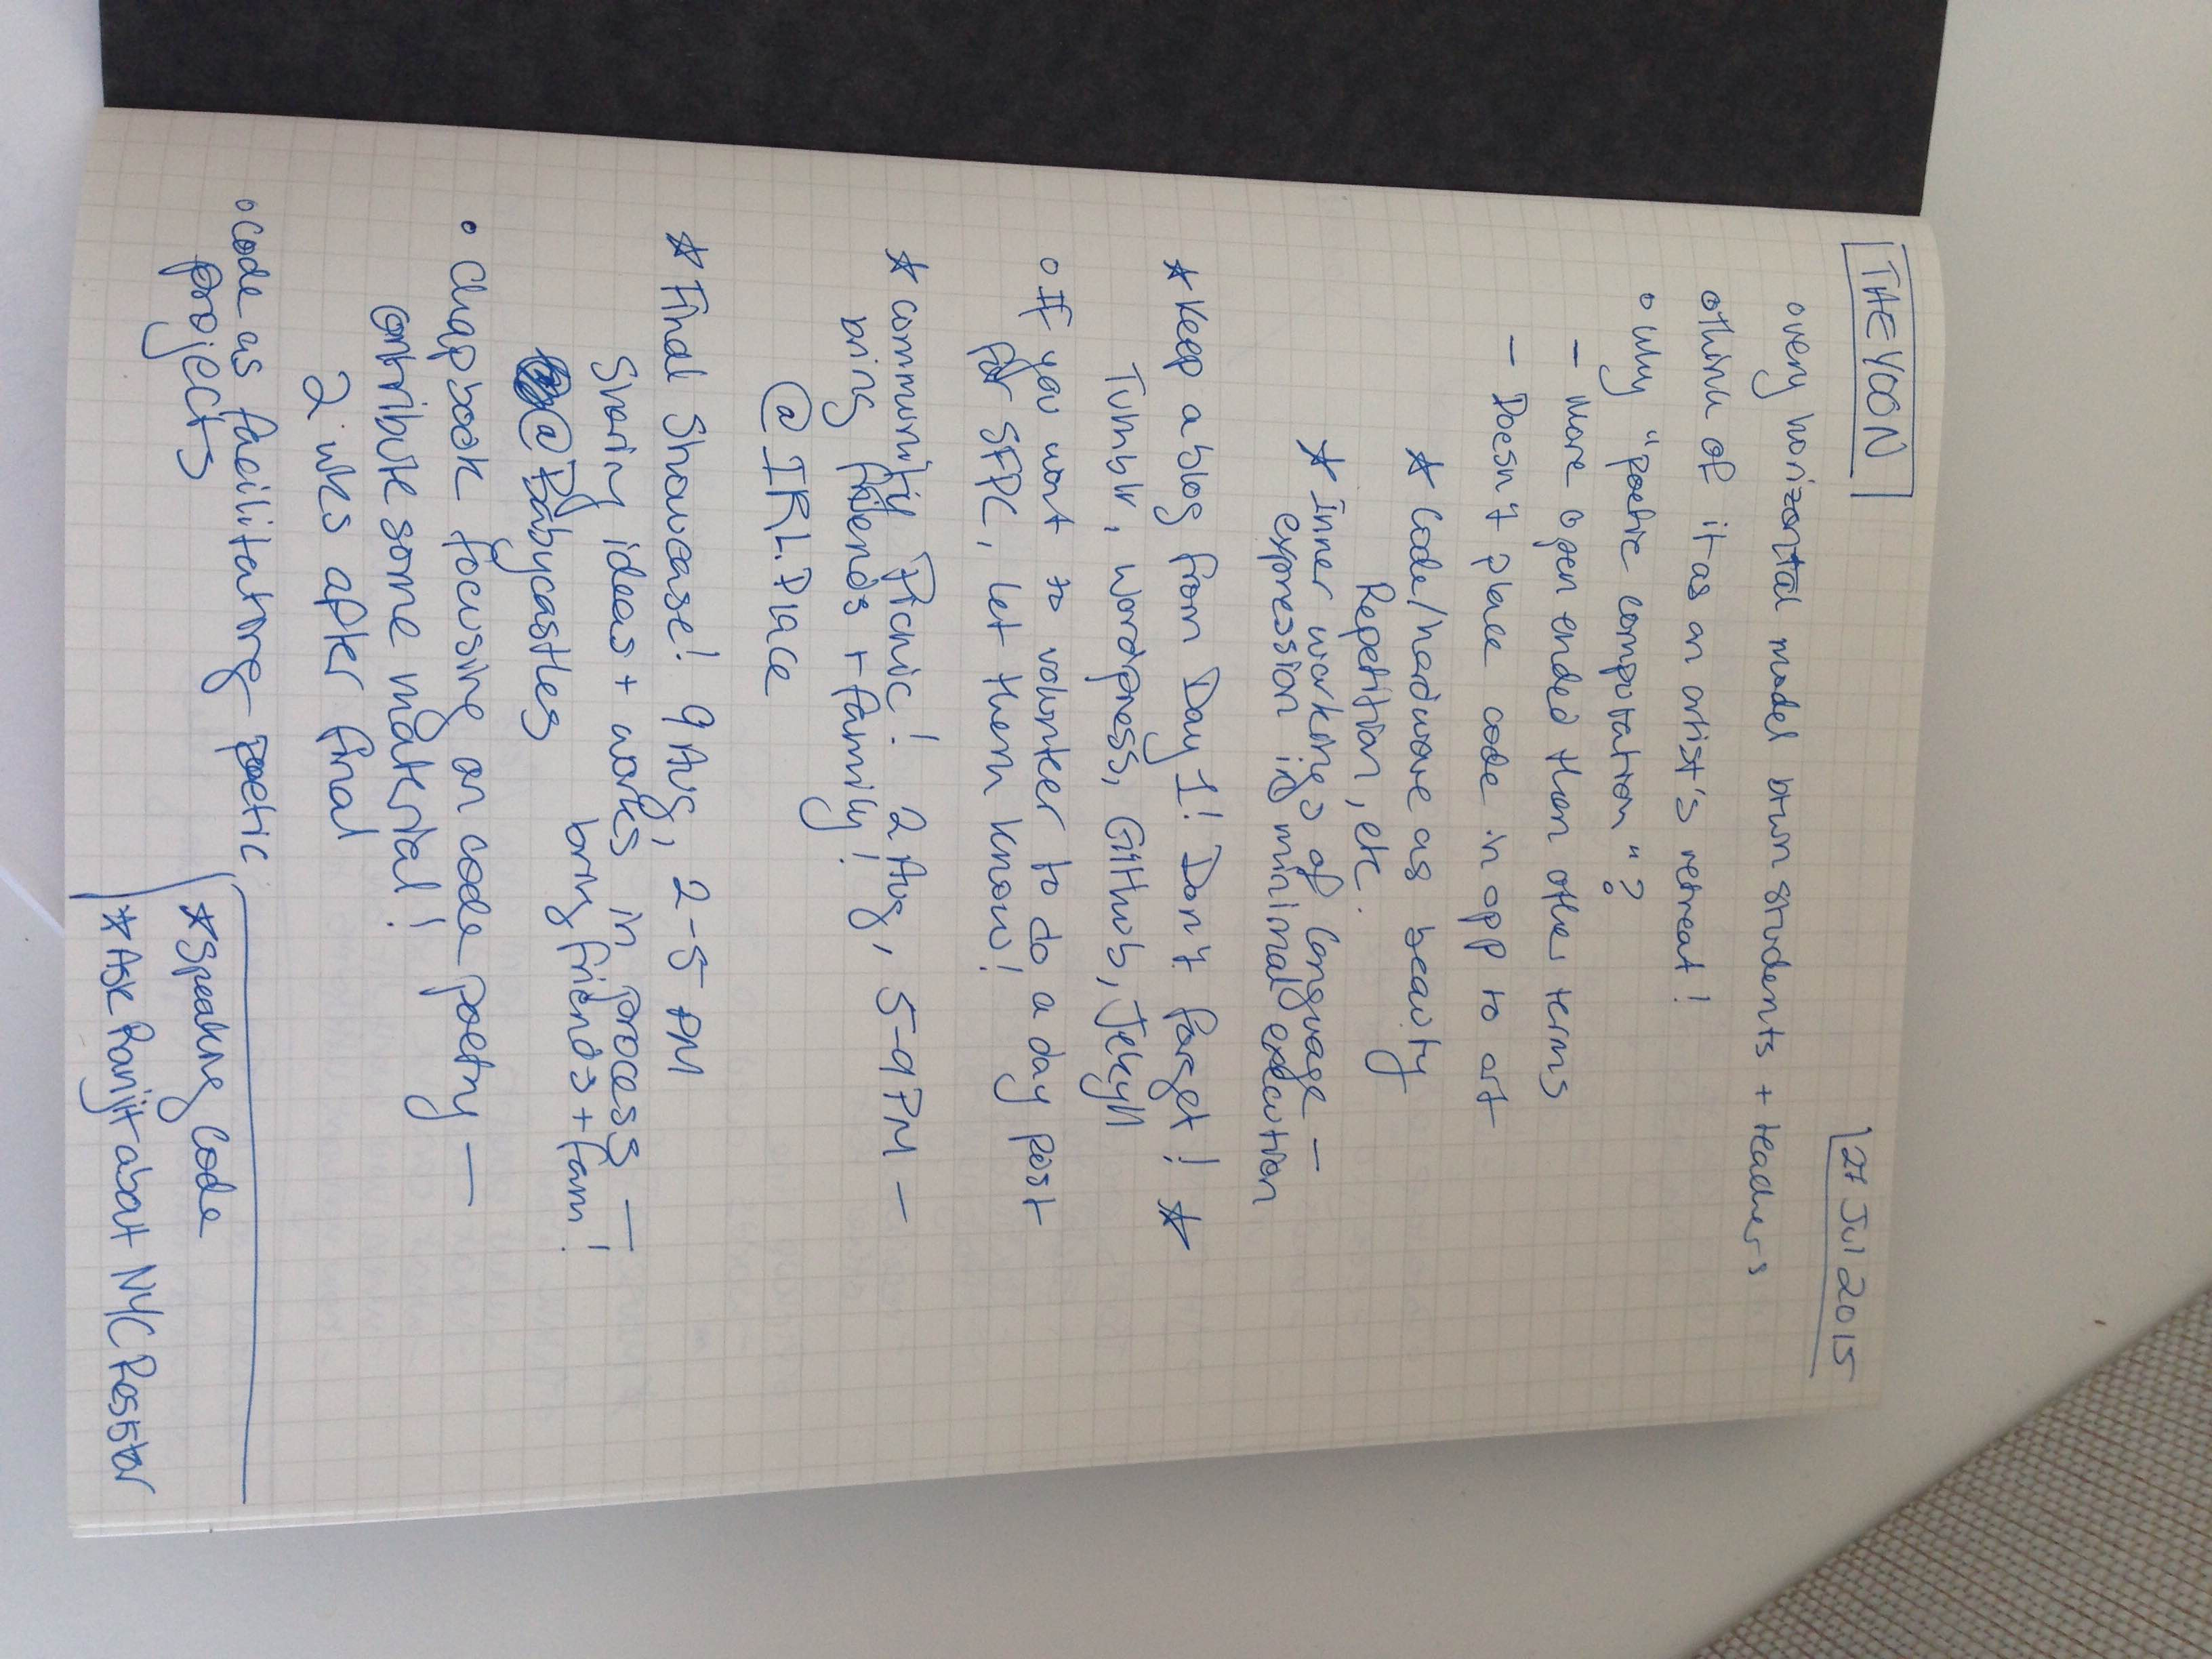 TAEYOON
27 Jul 2015
○ very horizontal model btwn students + teachers
○ think of it as an artist's retreat!
○ why "poetic computation"?
– more open ended than other terms
– Doesn't place code in opp to art
☆ Code/hardware as beauty
Repetition, etc.
☆ Inner workings of language –
expression in minimal execution
☆ Keep a blog from Day 1! Don't forget! ☆
Tumblr, wordpress, GitHub, Jekyll
○ If you want to volunteer to do a day post
for SFPC, let them know!
☆ Community Picnic! 2 Aug, 5-9 PM –
bring friends + family!
@ IRL Place
☆ Final Showcase! 9 Aug, 2-5 PM
Sharing ideas + works in process –
bring friends + fam!
@ Babycastles
• Chapbook focusing on code poetry –
contribute some material!
2 wks after final
○ code as facilitating poetic
projects
☆ Speaking Code
☆ Ask Ranjit about NYC Resistor